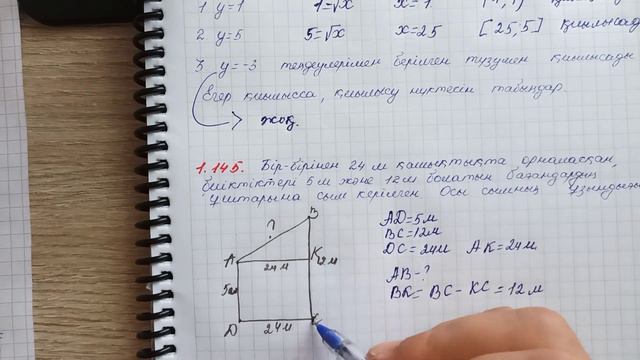 1 y=1 1=√x x=1
2 y=5 5=√x x=25 [25,5] қиылысад
3 y=-3 теңдеулерімен берілген түзумен қиылысады
Егер қиылысса, қиылысу нүктесін табыңдар.
жоқ.
1.145. Бір-бірінен 24 м қашықтықта орналасқан,
биіктіктері 5 м және 12 м болатын бағандардың
ұштарына сым керілген Осы сымның ұзындығы
B
?
A K 12 м
24 м
5 м
D 24 м C
AD=5м
BC=12м
DC=24м AK=24м
AB-?
BK=BC-KC=12м